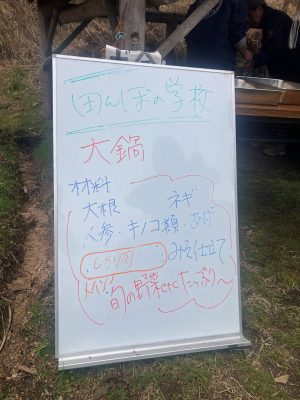 田んぼの学校
大鍋
材料
大根 ネギ
人参・キノコ類・あげ
・しか肉 みそ仕立て
旬の野菜etcたっぷり〜